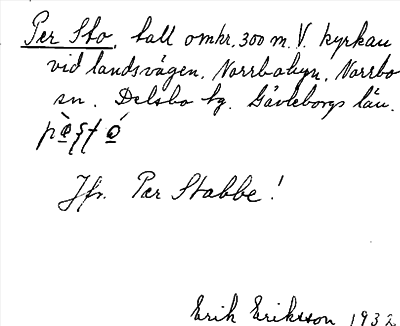 Per Sto, tall omkr. 300 m. V. kyrkan
vid landsvägen, Norrbobyn, Norrbo
sn. Delsbo tg. Gävleborgs län.
Jfr. Per Stabbe!
Erik Eriksson 1932